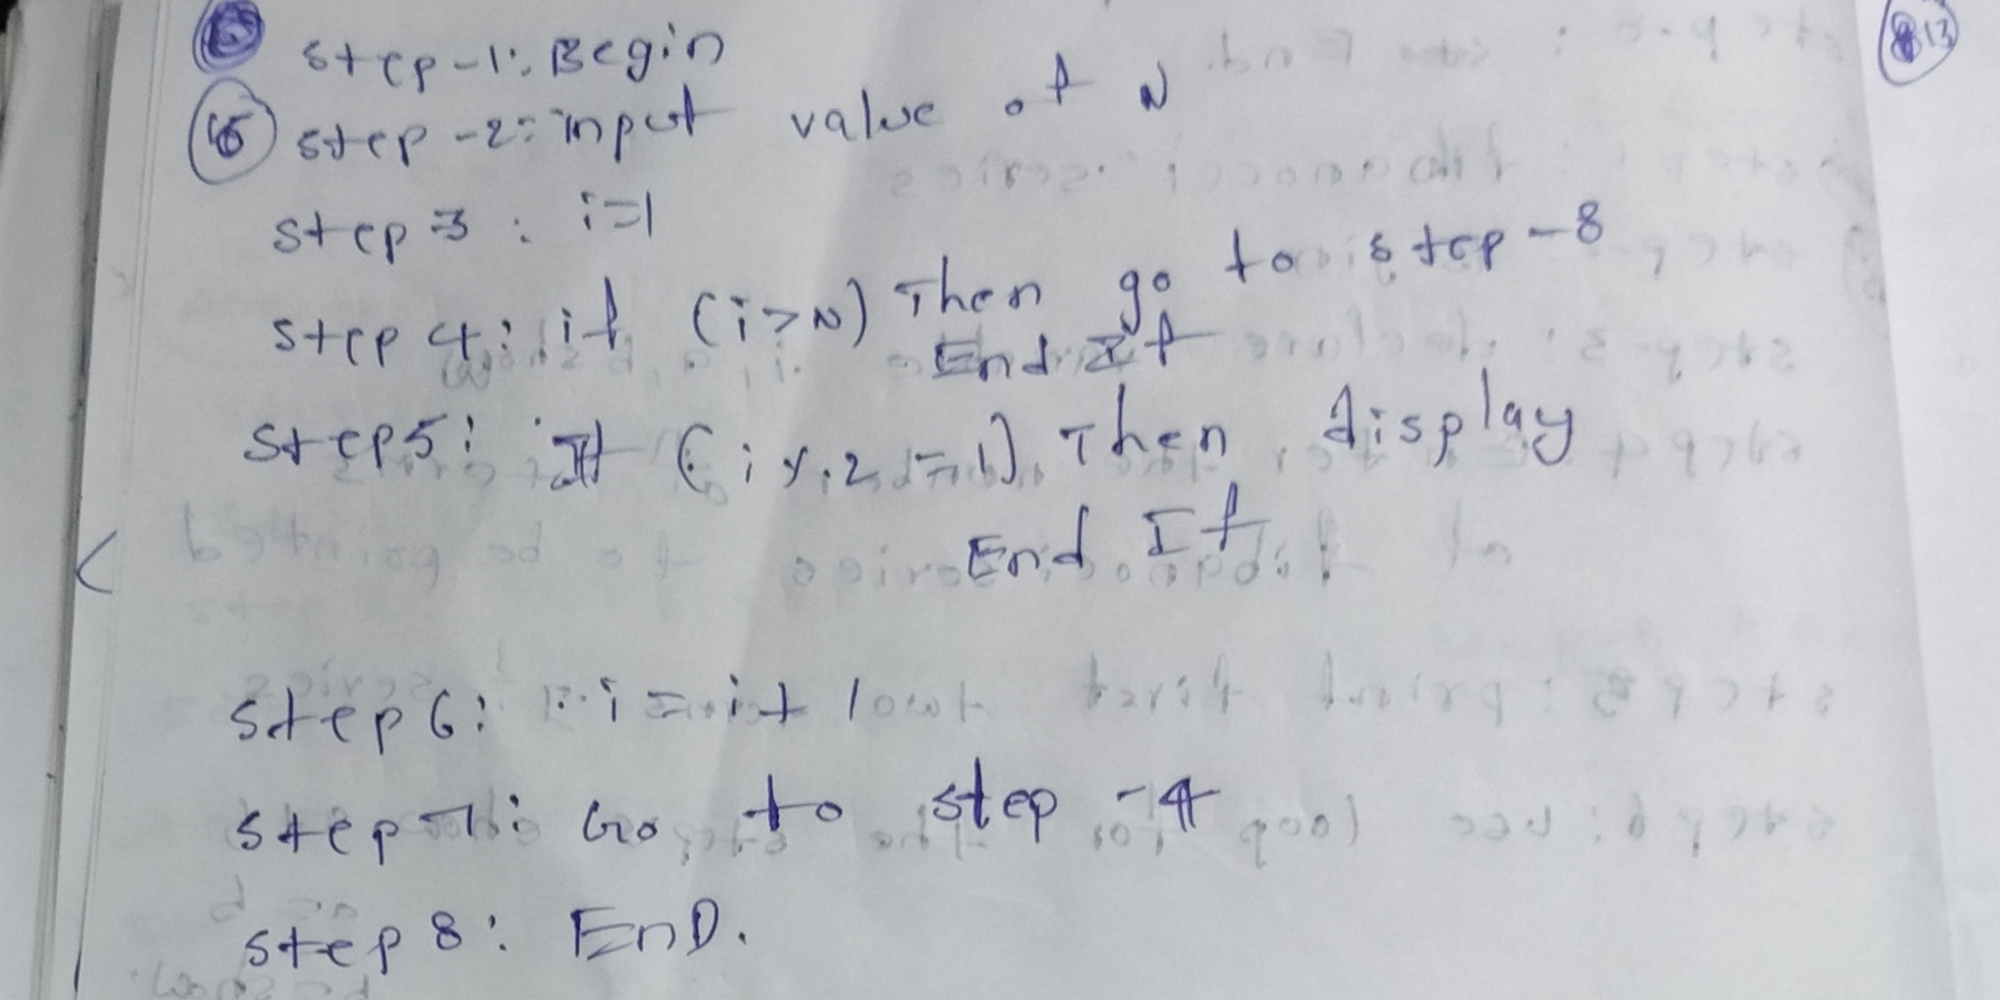 13
step-1: Begin
15 step-2: input value of N
step 3 : i=1
step 4: if (i>N) Then go to step-8
End If
step5: If (i%2 ==1) Then display
End If
step 6: i = i+1
step 7: Go to step -4
step 8: EnD.